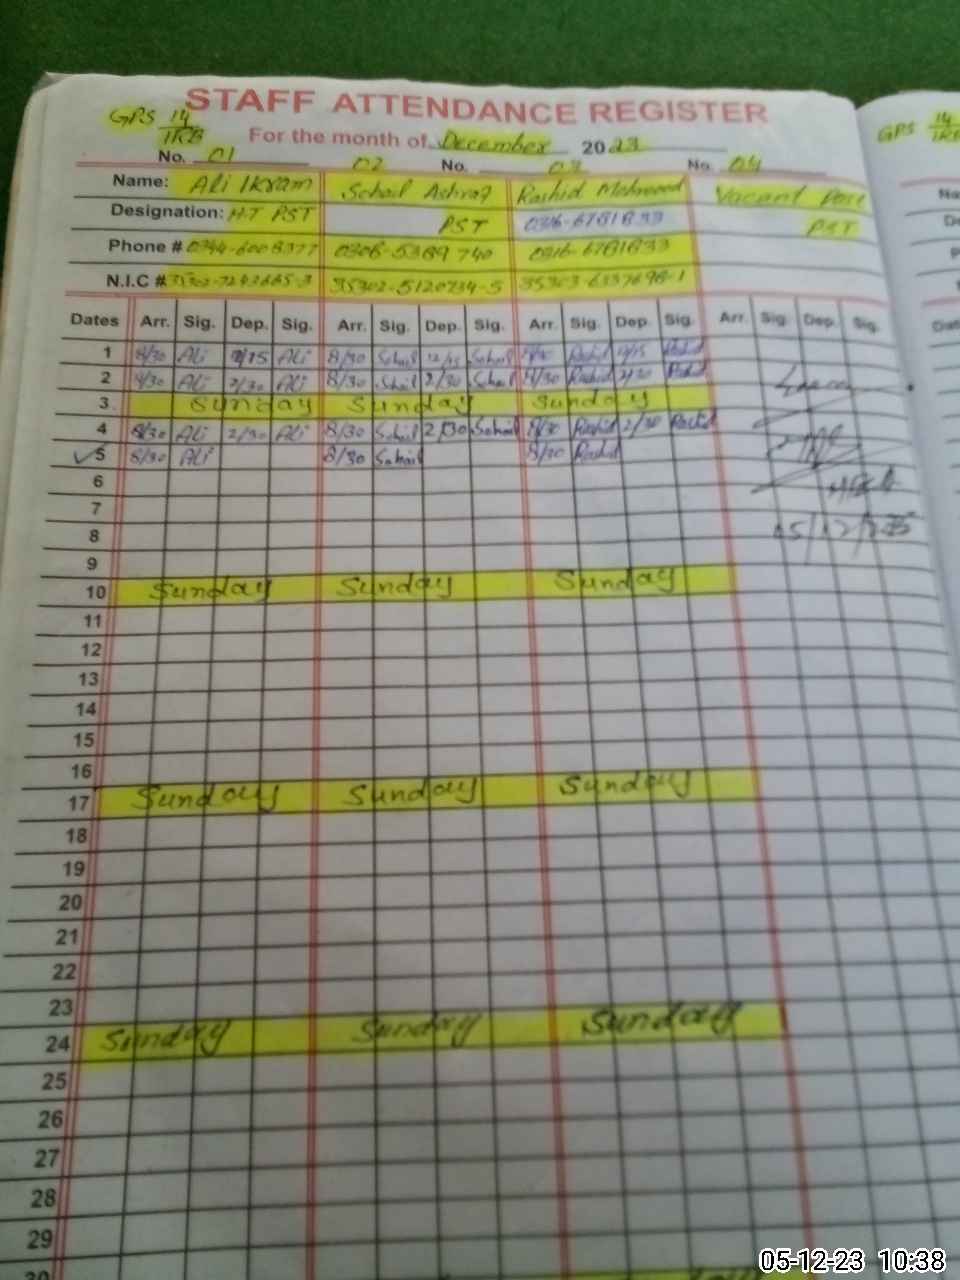 STAFF ATTENDANCE REGISTER
GPS 14/1KB
For the month of December 2023
No. 01 02 No. 03 No. 04
Name: Ali Ikram Sohail Ashraf Rashid Mehmood Vacant Post
Designation: HT PST PST 0316-6781833 PST
Phone # 0344-6008377 0306-5389740 0316-6781833
N.I.C # 35302-5120734-5
Dates Arr. Sig. Dep. Sig. Arr. Sig. Dep. Sig. Arr. Sig. Dep. Sig. Arr. Sig. Dep. Sig.
1 8/30 Ali 12/15 Ali 8/30 Sohail 12/15 Sohail 8/30 Rashid 12/15 Rashid
2 8/30 Ali 2/30 Ali 8/30 Sohail 2/30 Sohail 8/30 Rashid 2/30 Rashid
3 Sunday Sunday Sunday
4 8/30 Ali 2/30 Ali 8/30 Sohail 2/30 Sohail 8/30 Rashid 2/30 Rashid
5 8/30 Ali 8/30 Sohail 8/30 Rashid
6
7
8
9
10 Sunday Sunday Sunday
11
12
13
14
15
16
17 Sunday Sunday Sunday
18
19
20
21
22
23
24 Sunday Sunday Sunday
25
26
27
28
29
30
05-12-23 10:38